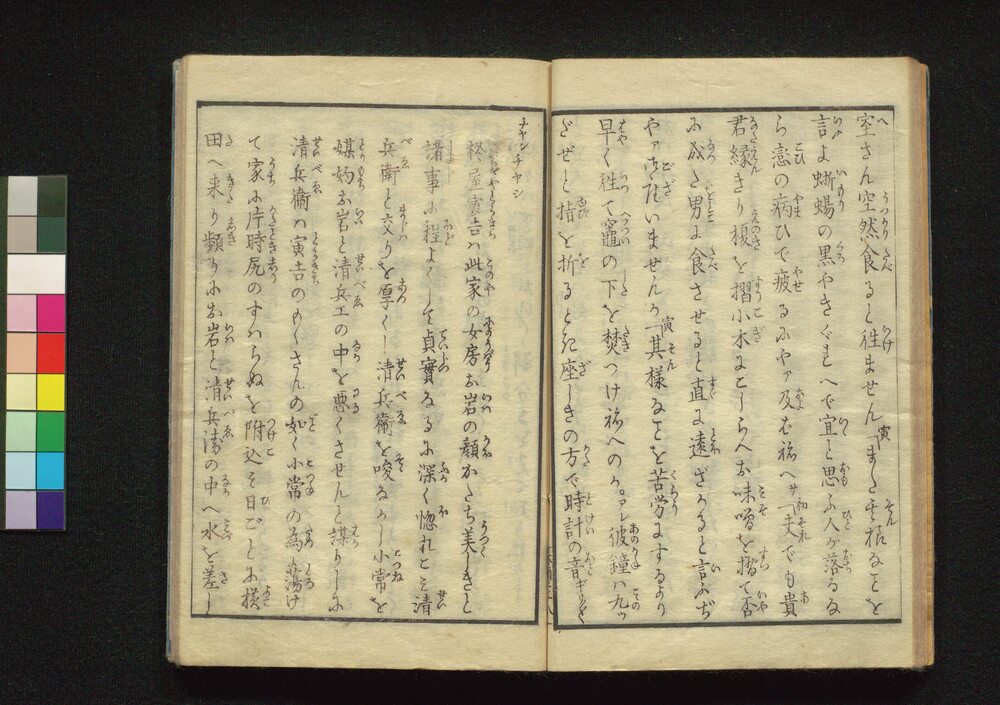 空さん空然食ると往ません寅「まだ其様なことを
言よ蜥蜴の黒やきぐ〓へで宜と思ふ人が落るな
ら恋の病ひで疲るふやァ及む〓へサ和「夫でも貴
君縁きり榎を摺小木にこしらへお味噌を摺て否
に成た男に食させると直に遠ざかると言ふぢ
やァ御座いませんか寅「其様なことを苦労するより
早く往て竈の下を焚つけ〓へのか。アレ彼鐘は九ッ
だぜと指を折るとき座しきの方で時計の音ギリ〱
チャンチヤン
柊屋寅吉は此家の女房お岩の顔かたち美しきと
諸事に程よくして貞實なるに深く惚れこみ清
兵衛と交りを厚くし清兵衛を唆なかし小常を
媒妁お岩と清兵エの中を悪くさせんと謀りしに
清兵衛は寅吉のもくさんの如く小常の為に蕩け
て家に片時尻のすはらぬを附込を日ごとに横
田へ来り頻りにお岩と清兵衛の中へ水を差し